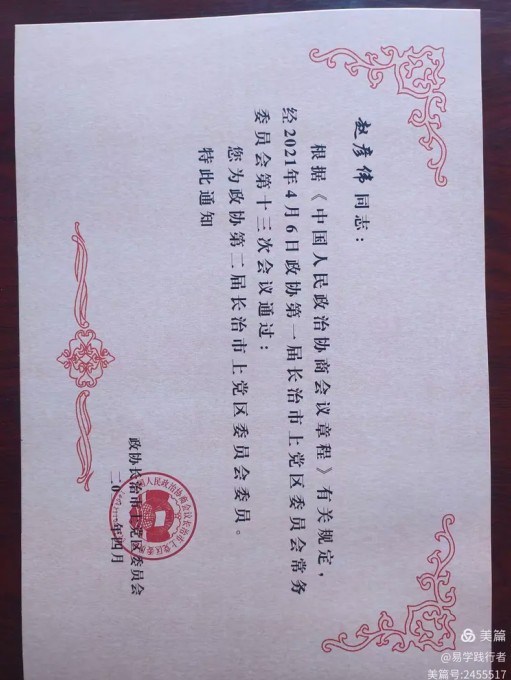 赵彦伟同志：
根据《中国人民政治协商会议章程》有关规定，
经2021年4月6日政协第一届长治市上党区委员会常务
委员会第十三次会议通过：
您为政协第二届长治市上党区委员会委员。
特此通知
政协长治市上党区委员会
二〇二一年四月
美篇
@易学践行者
美篇号:2455517